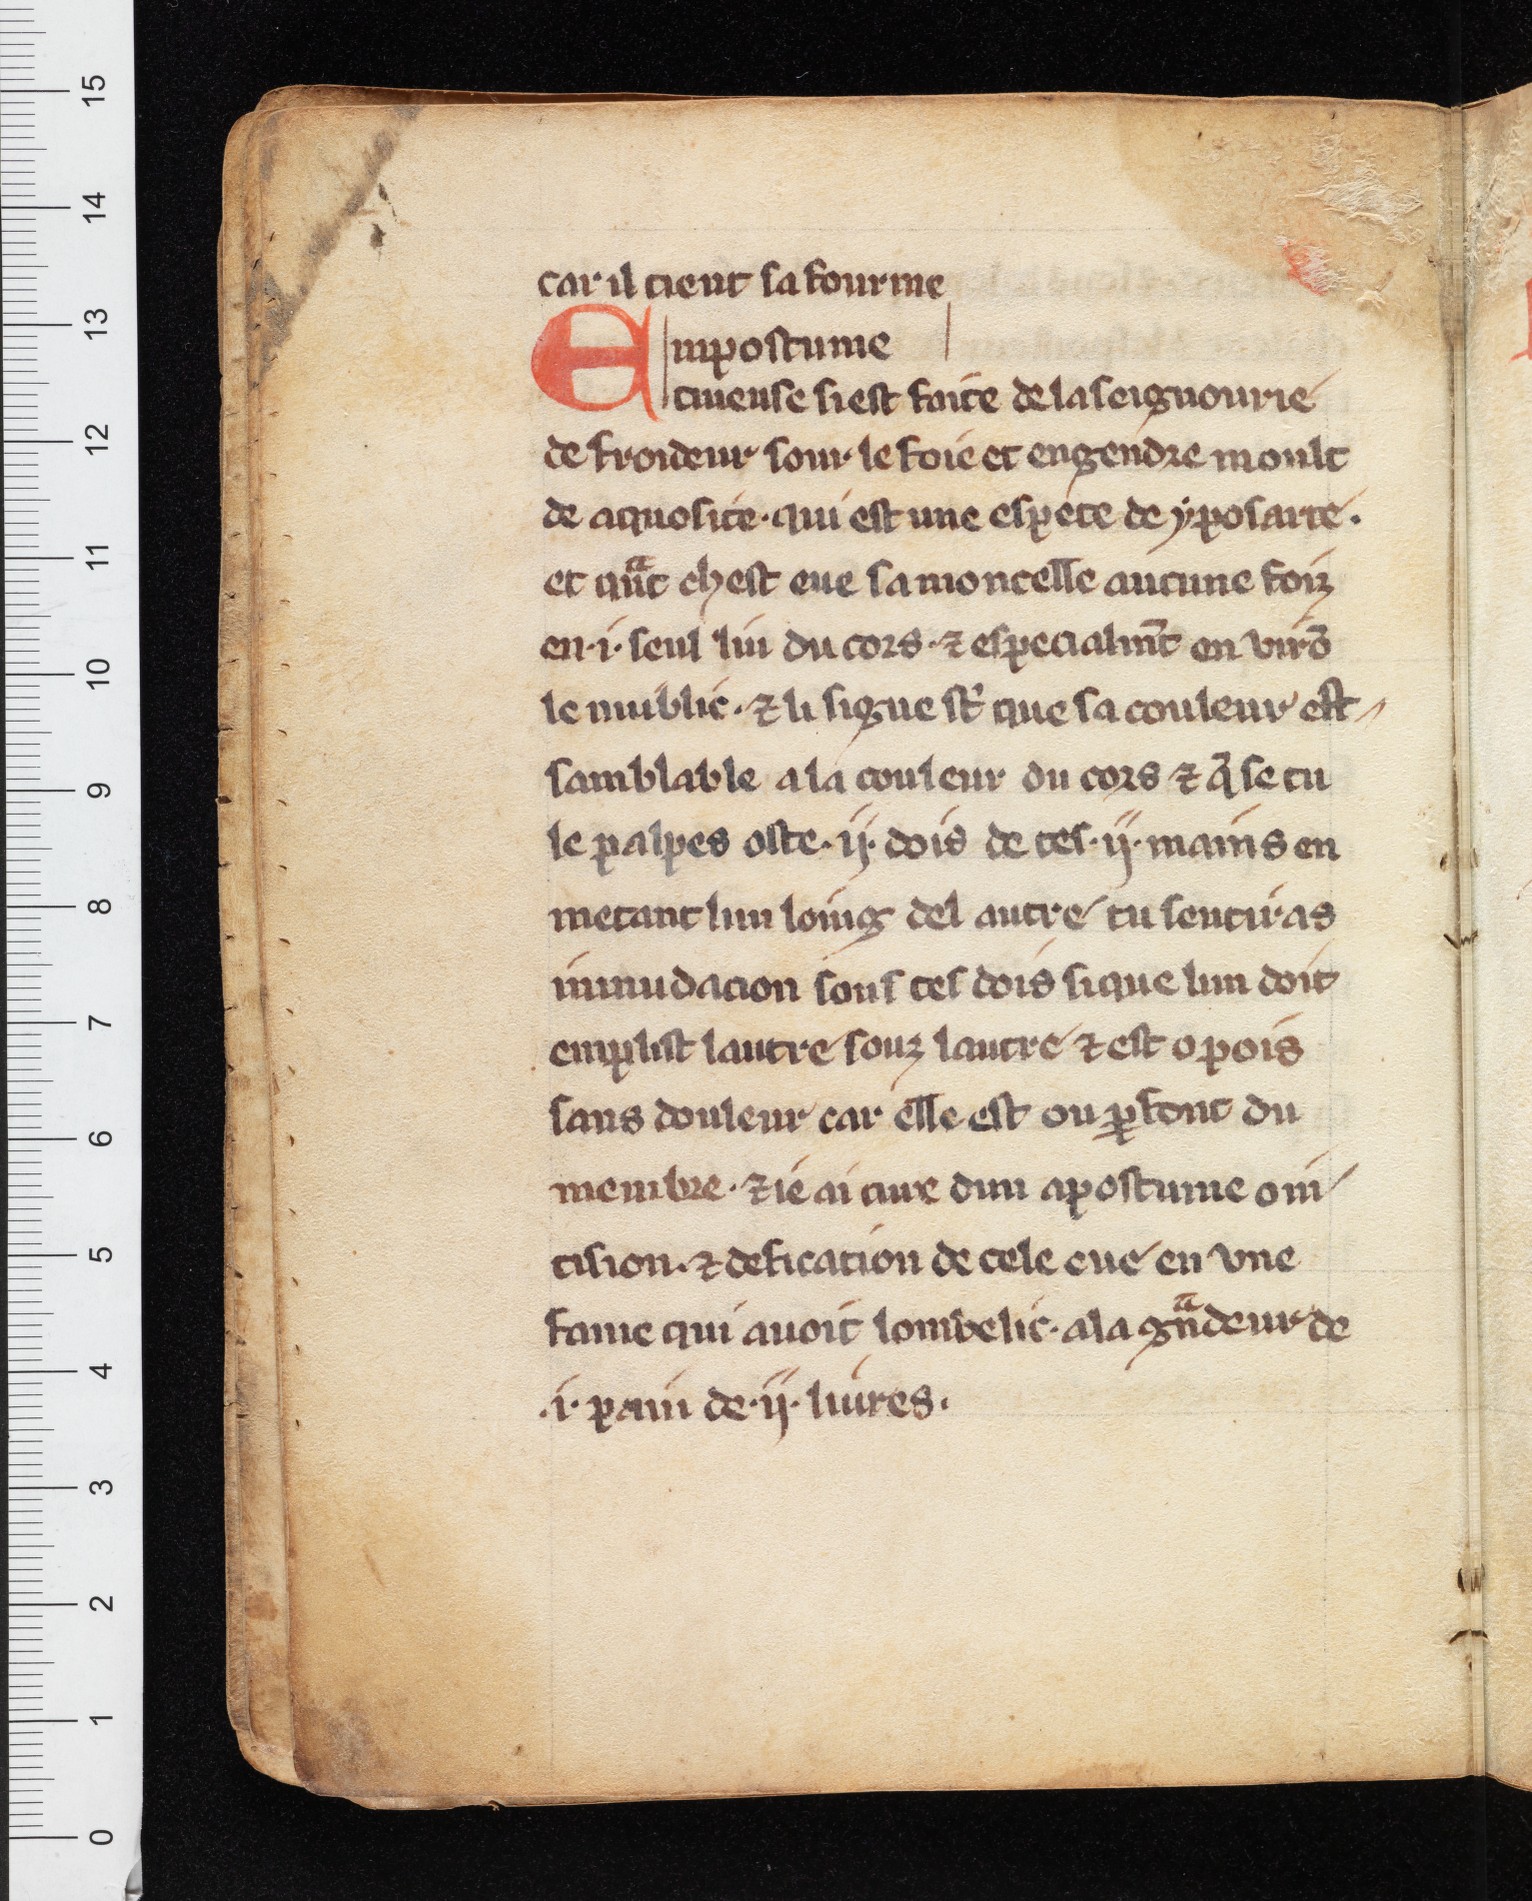 car il tient sa fourme
Empostume
eiueuse si est faite de la seignourie
de froideur sour le foie et engendre moult
de aquosite· qui est une espece de yposarce·
et qͣnt chest eue samoncelle aucune foiz
en·i· seul liu du cors· ⁊ especialmt̄ en virō
le nuiblic· ⁊ li signe st̾ que sa couleur est
samblable a la couleur du cors ⁊ q̄ se tu
le palpes oste· ij· dois de tes· ij· mains en
metant lun loing del autre tu sentiras
inundacion sous tes dois si que lun doit
emplist lautre souz lautre ⁊ est o pois
sans douleur car elle est ou ꝑfont du
membre· ⁊ ie ai cure dun apostume o in
cision· ⁊ desicacion de cele eue en vne
fame qui auoit lombelic· a la gͣndeur de
·i· pain de· ij· liures·
15
14
13
12
11
10
9
8
7
6
5
4
3
2
1
0